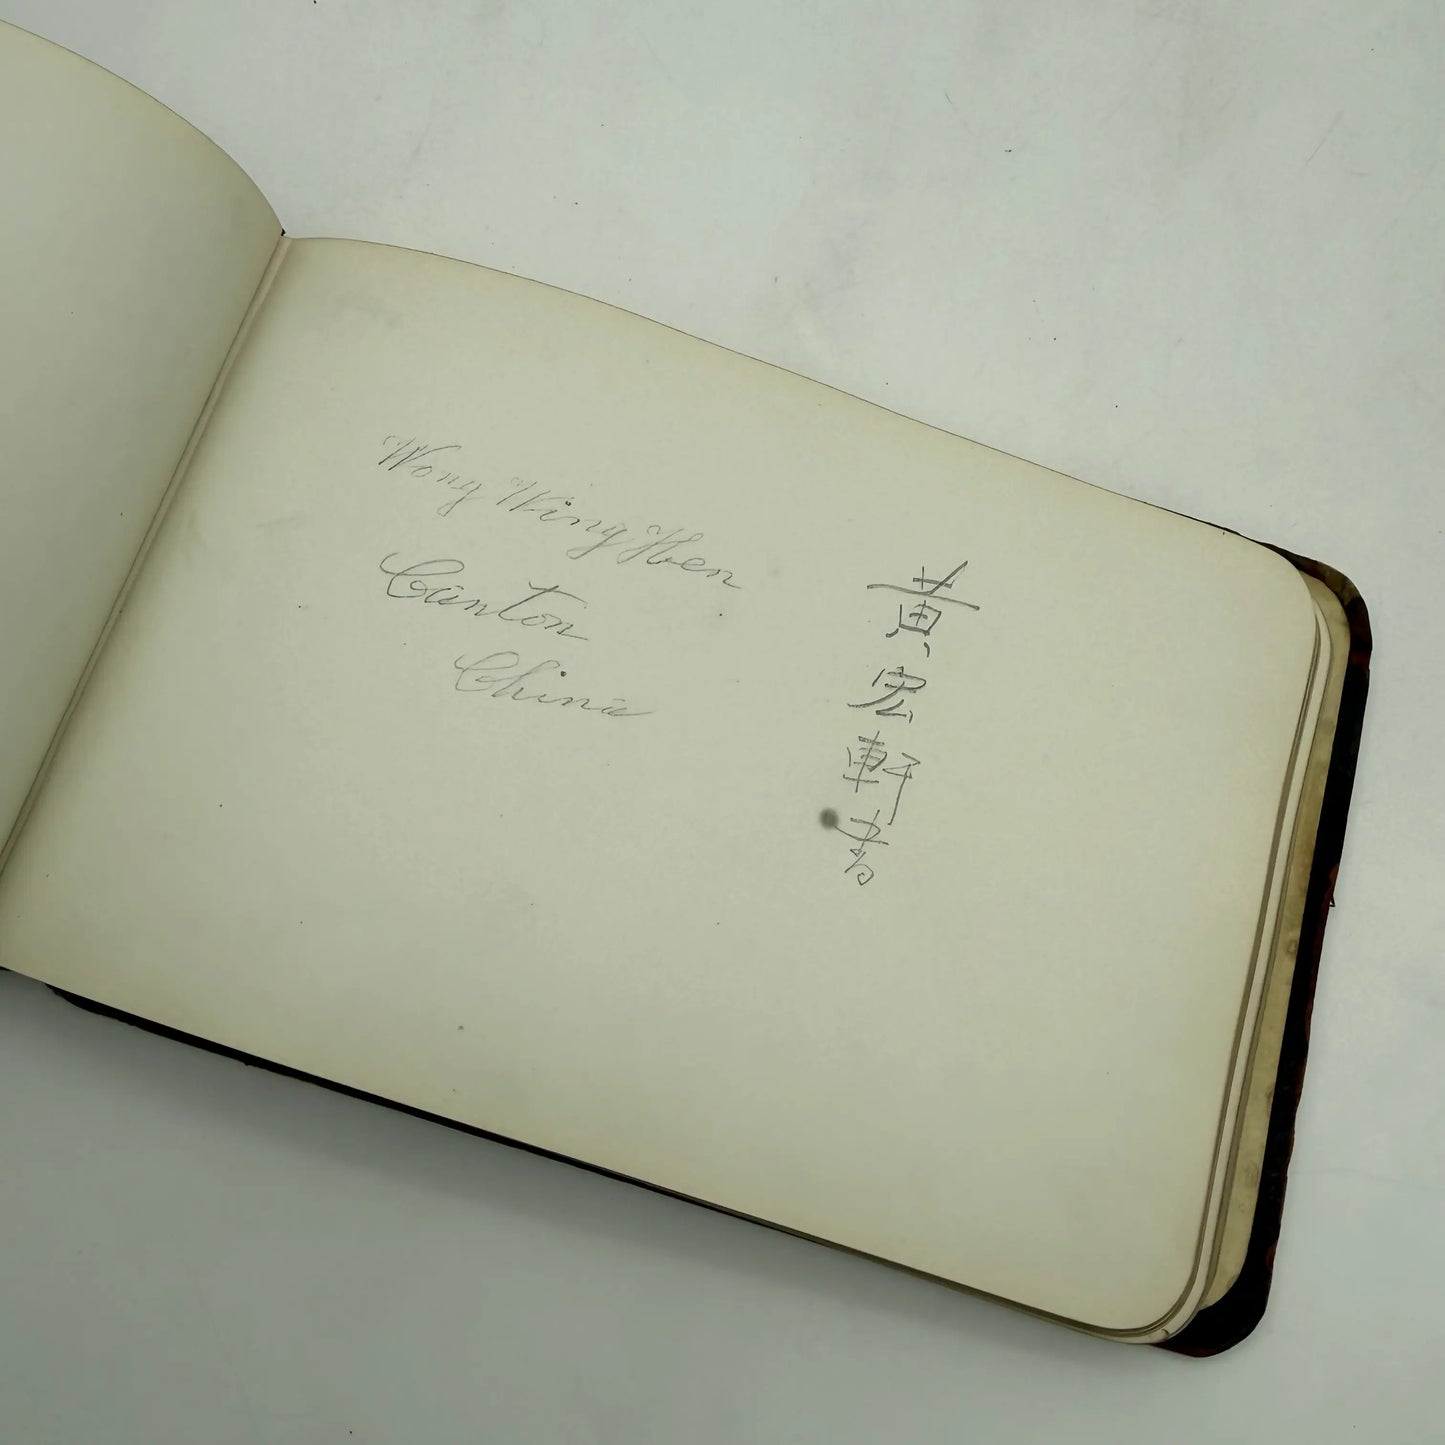 Wong Wing Hen
Canton
China
黃宏軒書